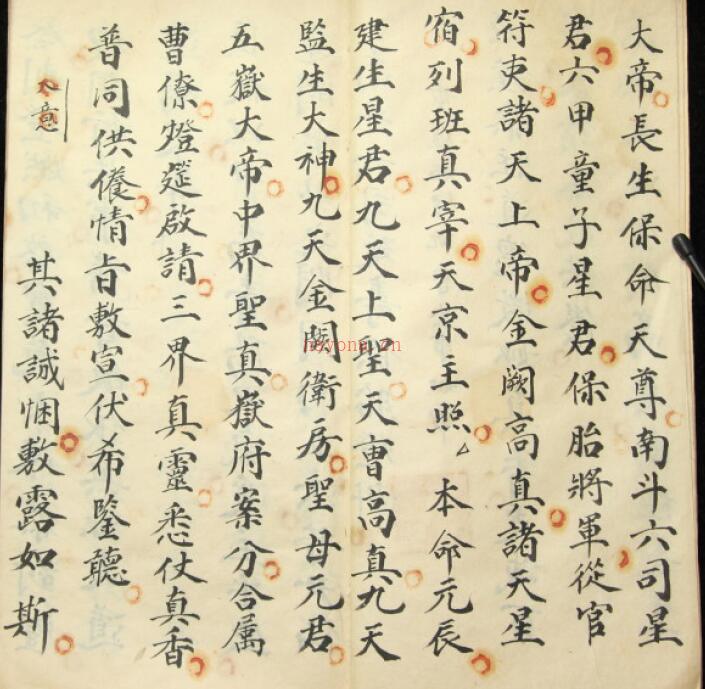 大帝長生保命天尊南斗六司星
君六甲童子星君保胎將軍從官
符吏諸天上帝金闕高真諸天星
宿列班真宰天京主照厶 本命元辰
建生星君九天上聖天曹高真九天
監生大神九天金闕衛房聖母元君
五嶽大帝中界聖真嶽府案分合属
曹僚燈筵啟請三界真靈悉仗真香
普同供養情旨敷宣伏希鑒聽
入意
其諸誠悃敷露如斯